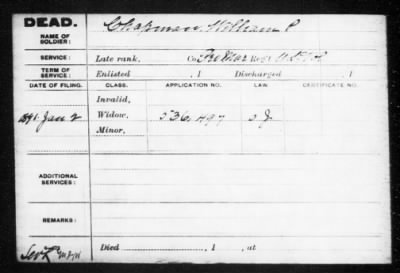 DEAD.
NAME OF SOLDIER: Chapman, William P
SERVICE: Late rank, Co. Reg't
TERM OF SERVICE: Enlisted , 1 Discharged , 1
DATE OF FILING. CLASS. APPLICATION NO. LAW. CERTIFICATE NO.
Invalid,
1891. Jan 2 Widow, 536,497
Minor,
ADDITIONAL SERVICES:
REMARKS:
Died , 1 , at